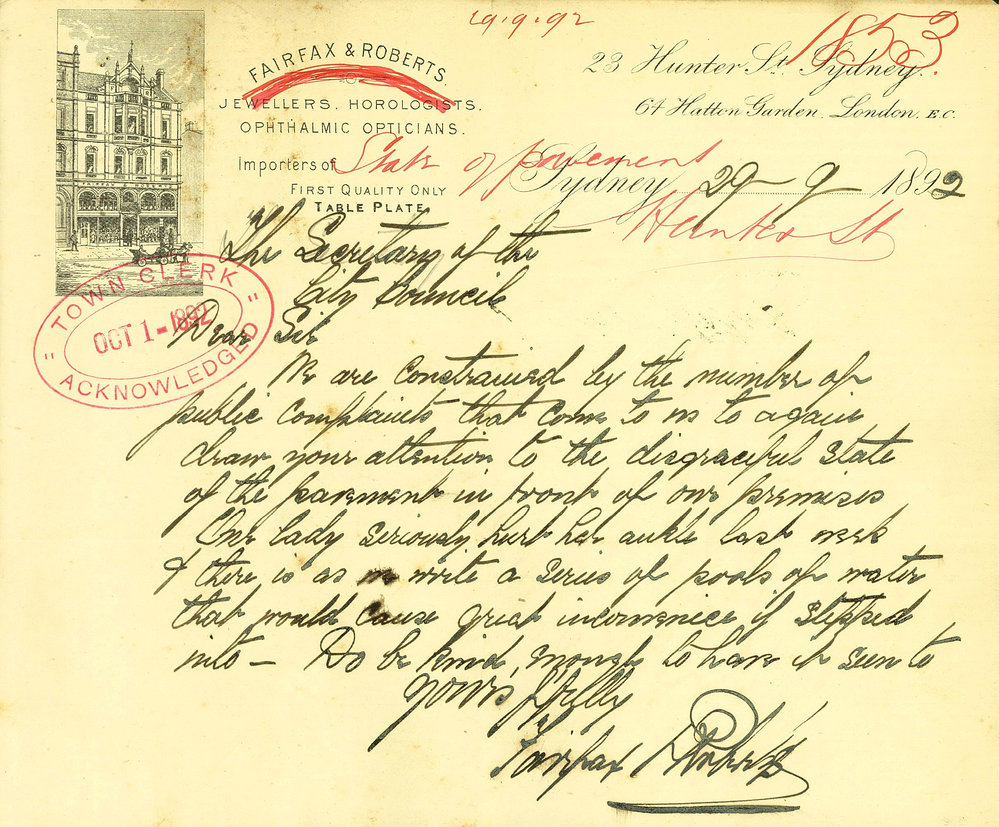 29.9.92
1853
FAIRFAX & ROBERTS
JEWELLERS. HOROLOGISTS.
OPHTHALMIC OPTICIANS.
Importers of
FIRST QUALITY ONLY
TABLE PLATE
23 Hunter St. Sydney.
64 Hatton Garden. London. E.C.
State of pavement
Hunter St
Sydney 29-9- 1892
The Secretary of the
City Council
"TOWN CLERK"
OCT 1-1892
ACKNOWLEDGED
Dear Sir
We are constrained by the number of
public complaints that come to us to again
draw your attention to the disgraceful state
of the pavement in front of our premises
One lady seriously hurt her ankle last week
& there is as we write a series of pools of water
that would cause great inconvenice if stepped
into — Do be kind enough to have it seen to
Yours ffully
Fairfax & Roberts